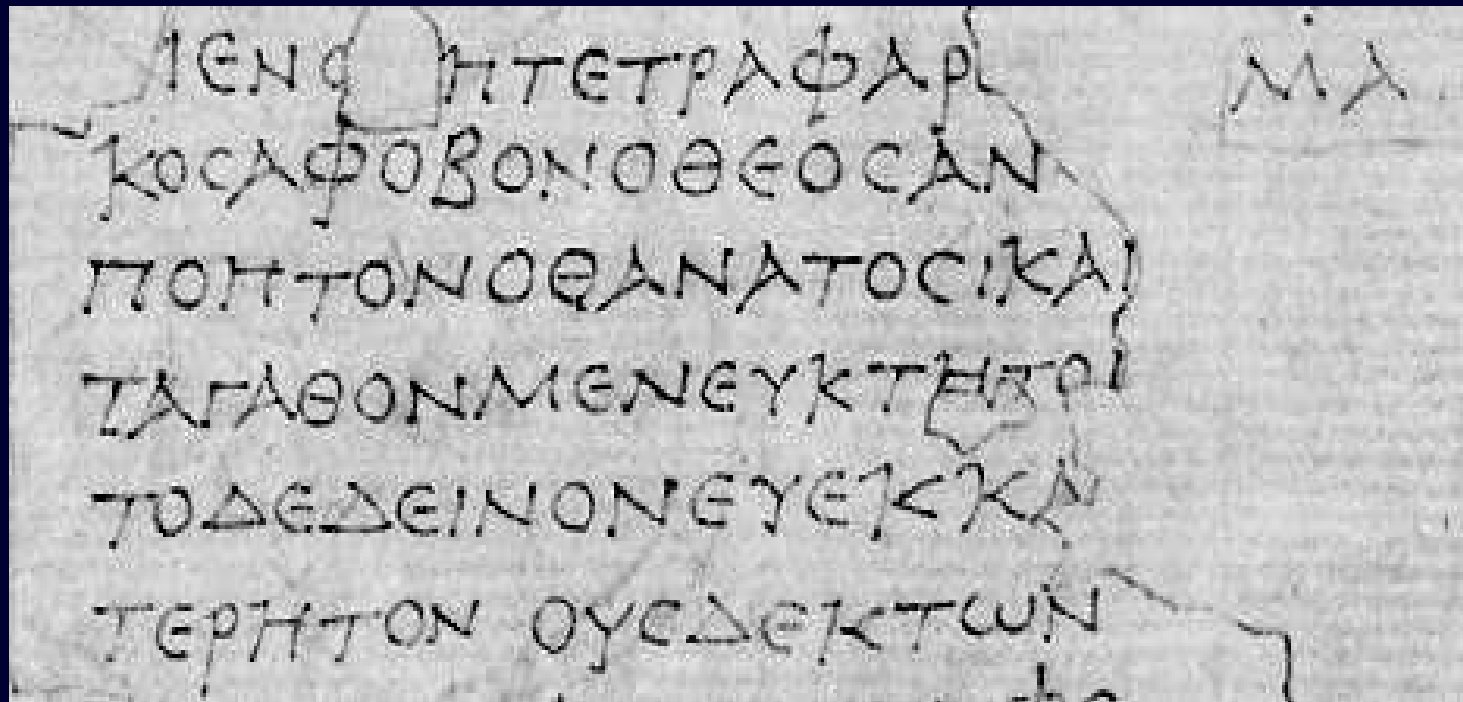 ΙΕΝϹ ΗΤΕΤΡΑΦΑΡ ΜΑ
ΚΟϹΑΦΟΒΟΝΟΘΕΟϹΑΝ
ΠΟΠΤΟΝΟΘΑΝΑΤΟϹΙΚΑΙ
ΤΑΓΑΘΟΝΜΕΝΕΥΚΤΗΤΟΙ
ΤΟΔΕΔΕΙΝΟΝΕΥΕΚΚΑΙ
ΤΕΡΗΤΟΝ ΟΥϹΔΕΚΤΩΝ